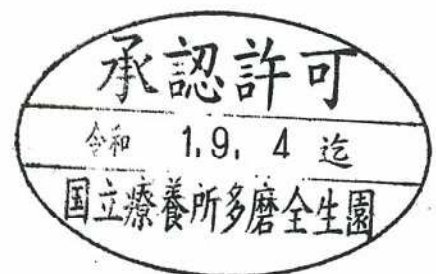 承認許可
令和 1.9.4 迄
国立療養所多磨全生園